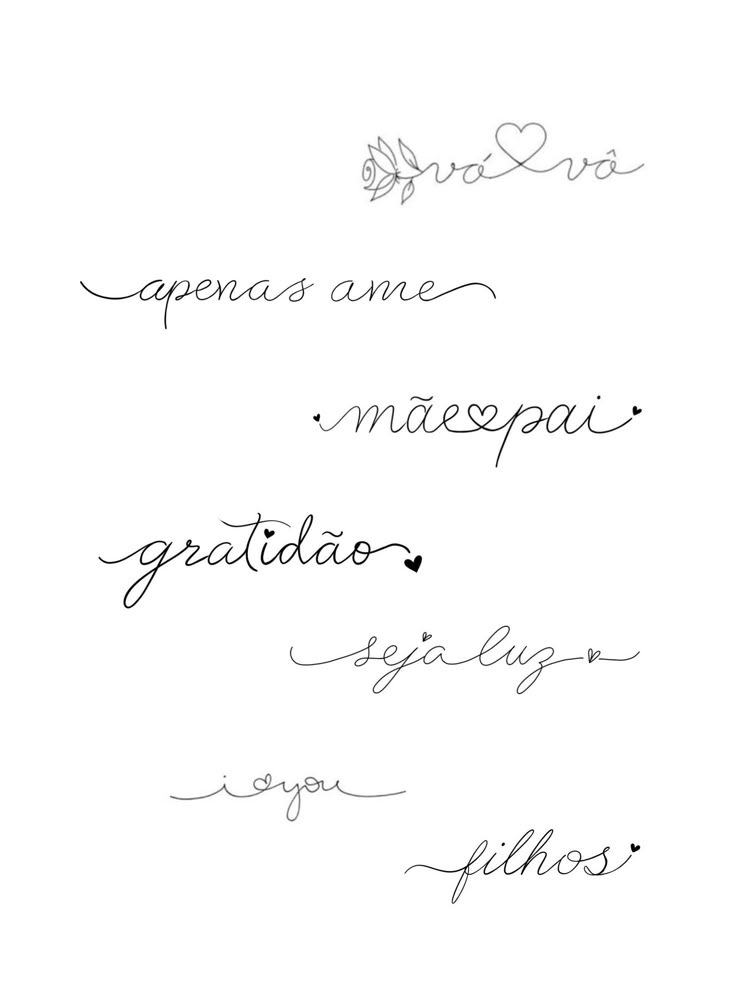 vó vô
apenas ame
mãe pai
gratidão
seja luz
i you
filhos